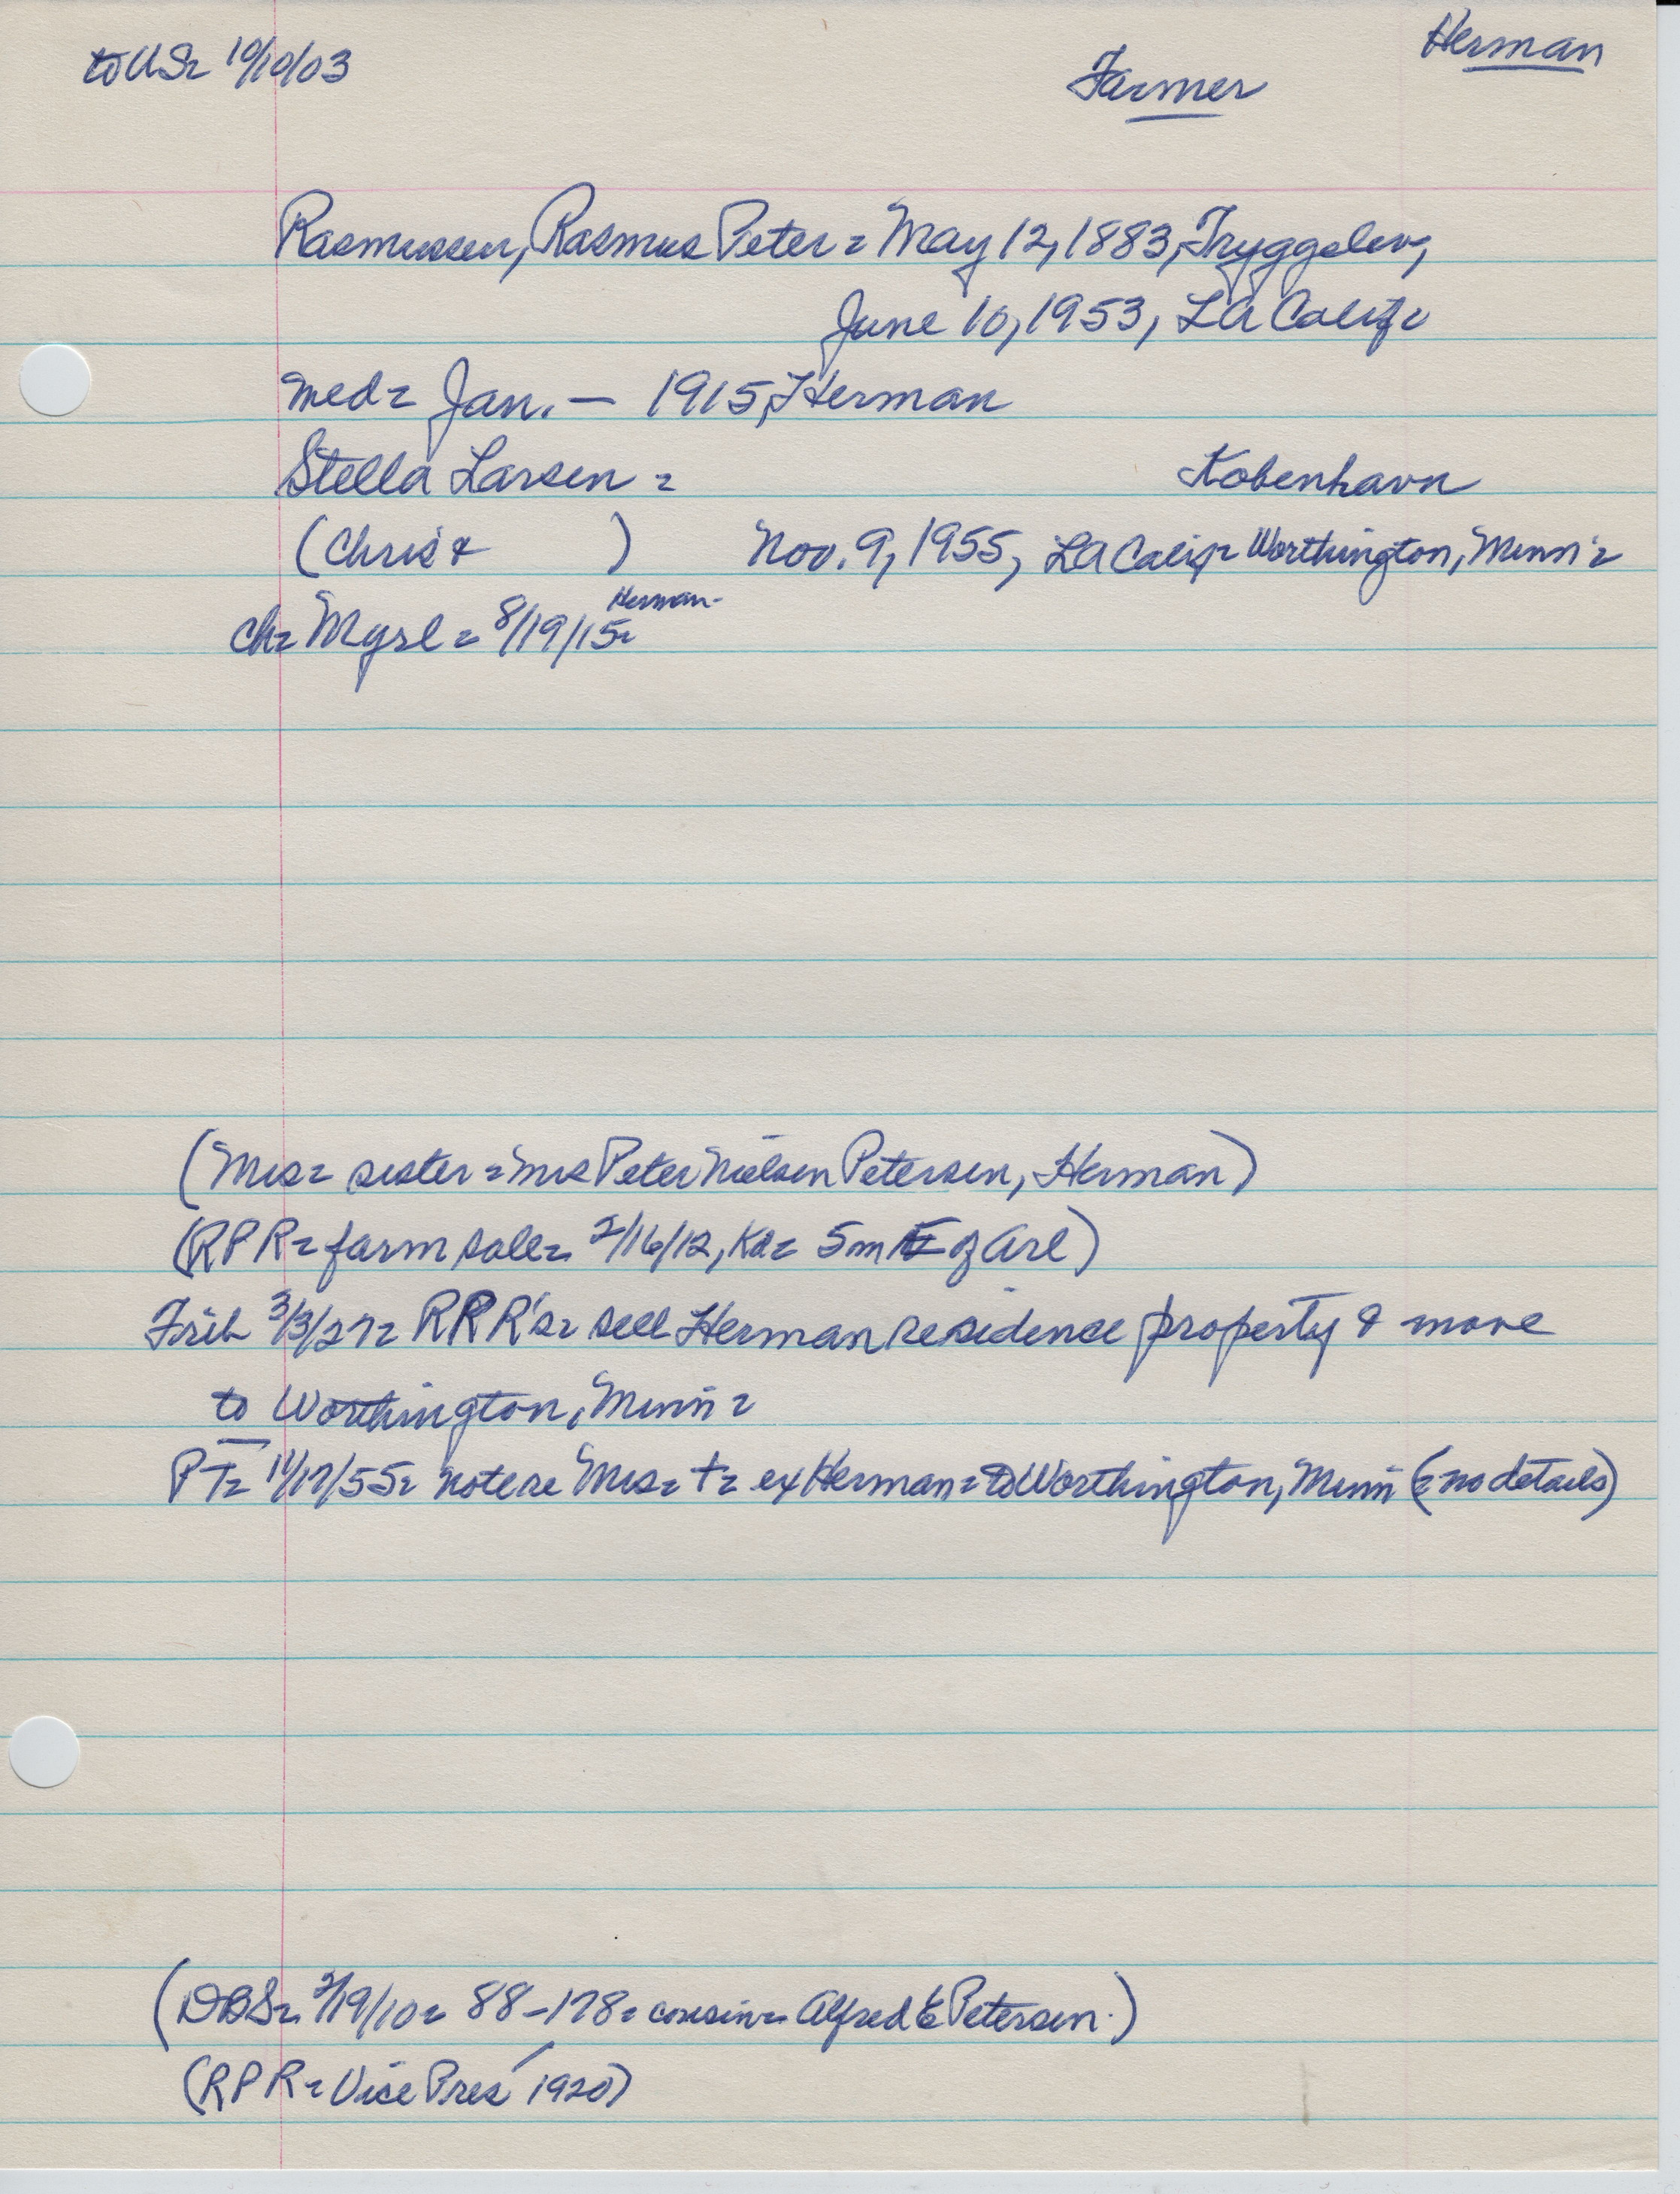 to US= 10/10/03
Farmer
Herman
Rasmussen, Rasmus Peter = May 12, 1883, Tryggelev,
June 10, 1953, LA Calif=
med= Jan. — 1915, Herman
Stella Larsen =
København
(Chris &        )
Nov. 9, 1955, LA Calif= Worthington, Minn=
Herman-
ch= Myrl = 8/19/15=
(Mrs= sister = Mrs Peter Nielsen Petersen, Herman)
(RPR= farm sale= 2/16/12, Kd= 5m E of Arl)
3/3/27= RPR's= sell Herman residence property & move
to Worthington, Minn=
PT= 11/17/55= note re Mrs= †= ex Herman= to Worthington, Minn (= no details)
(DBS= 2/19/10= 88-178= cousin= Alfred E Petersen.)
(RPR= Vice Pres' 1920)